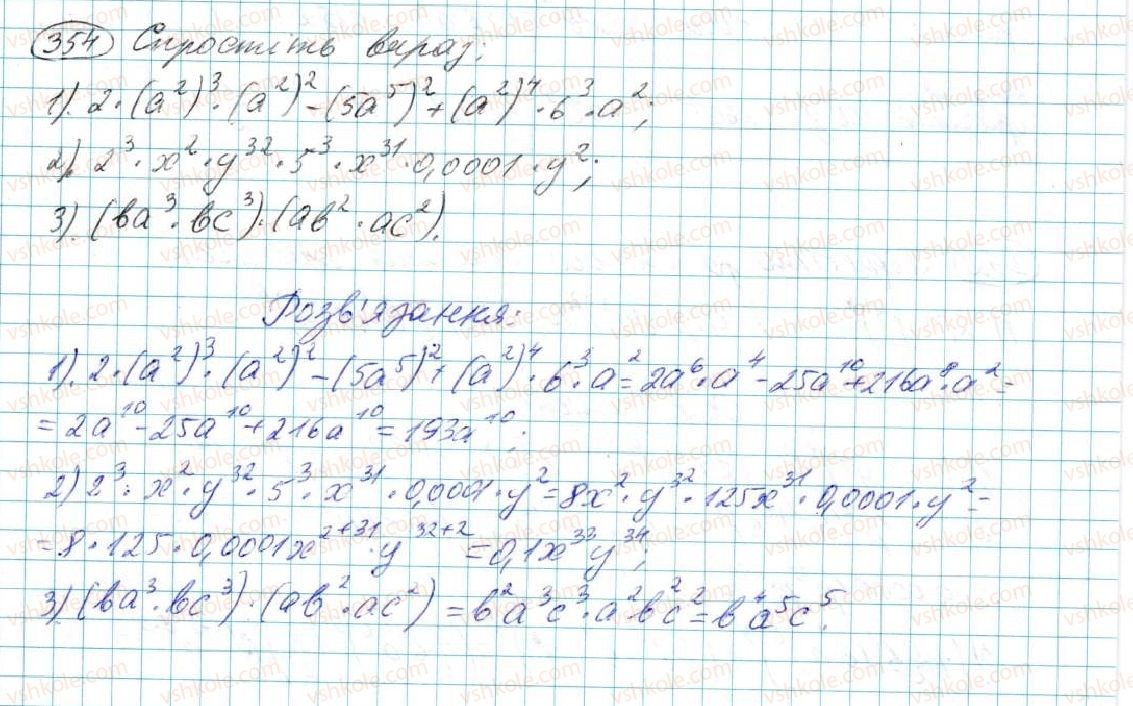 354 Спростіть вираз:
1). 2·(a²)³·(a²)²-(5a⁵)²+(a²)⁴·6³·a²;
2). 2³·x²·y³²·5³·x³¹·0,0001·y²;
3). (ba³·bc³)·(ab²·ac²).
Розв'язання:
1). 2·(a²)³·(a²)²-(5a⁵)²+(a²)⁴·6³·a²=2a⁶·a⁴-25a¹⁰+216a⁸·a²=
=2a¹⁰-25a¹⁰+216a¹⁰=193a¹⁰;
2) 2³·x²·y³²·5³·x³¹·0,0001·y²=8x²·y³²·125x³¹·0,0001·y²=
=8·125·0,0001x²⁺³¹·y³²⁺²=0,1x³³y³⁴;
3) (ba³·bc³)·(ab²·ac²)=b²a³c³·a²b²c²=b⁴a⁵c⁵.